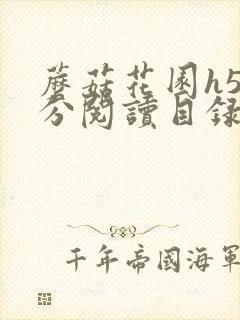 蘑菇花园h5
分閱讀目録
千年帝國海軍